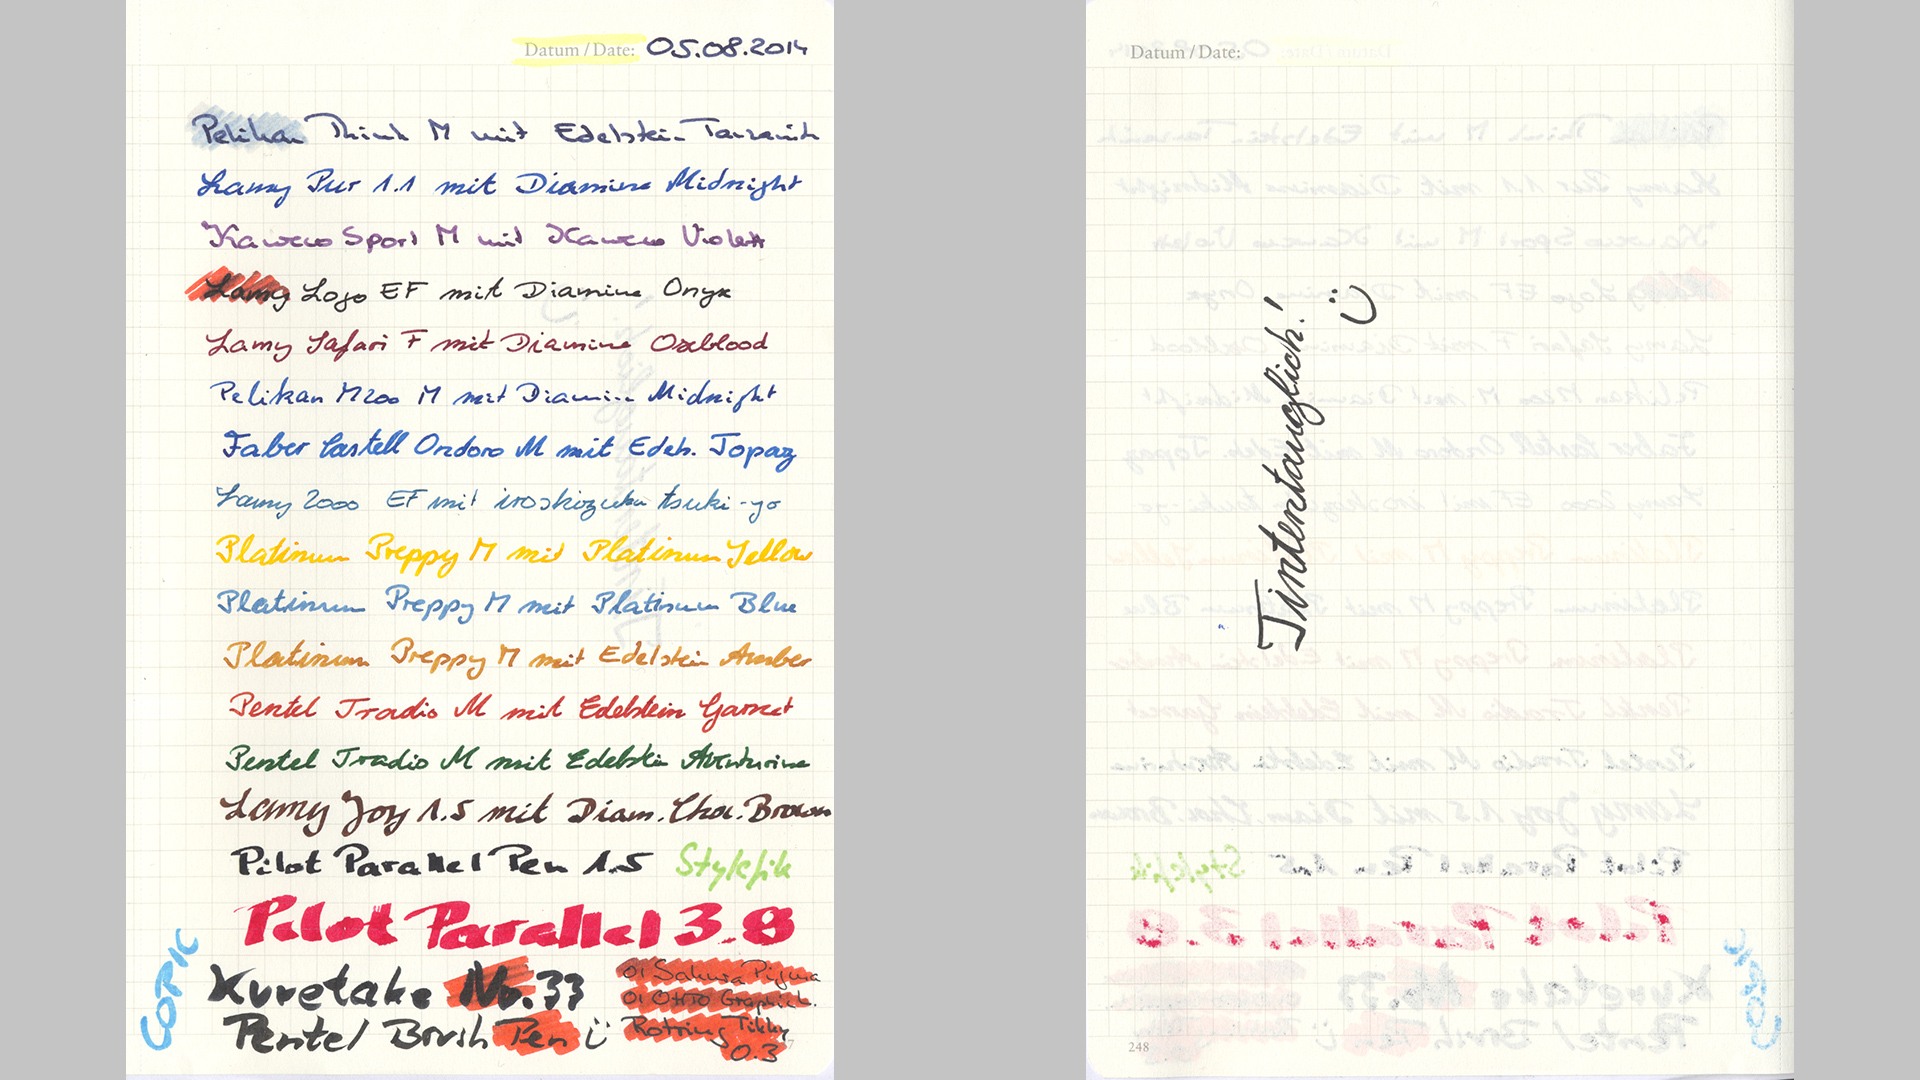 Datum / Date: 05.08.2014
Pelikan Think M mit Edelstein Tanzanit
Lamy Pur 1.1 mit Diamine Midnight
Kaweco Sport M mit Kaweco Violett
Lamy Logo EF mit Diamine Onyx
Lamy Safari F mit Diamine Oxblood
Pelikan M200 M mit Diamine Midnight
Faber Castell Ondoro M mit Edels. Topaz
Lamy 2000 EF mit iroshizuku tsuki-yo
Platinum Preppy M mit Platinum Yellow
Platinum Preppy M mit Platinum Blue
Platinum Preppy M mit Edelstein Amber
Pentel Tradio M mit Edelstein Garnet
Pentel Tradio M mit Edelstein Aventurine
Lamy Joy 1.5 mit Diam. Cho. Brown
Pilot Parallel Pen 1.5 Stylefile
Pilot Parallel 3.8
COPIC
Kuretake No. 33
Pentel Brush Pen
01 Sakura Pigma
01 OTTO Graphick.
Rotring Tikky
0.3
Datum / Date:
Tintentauglich!
248